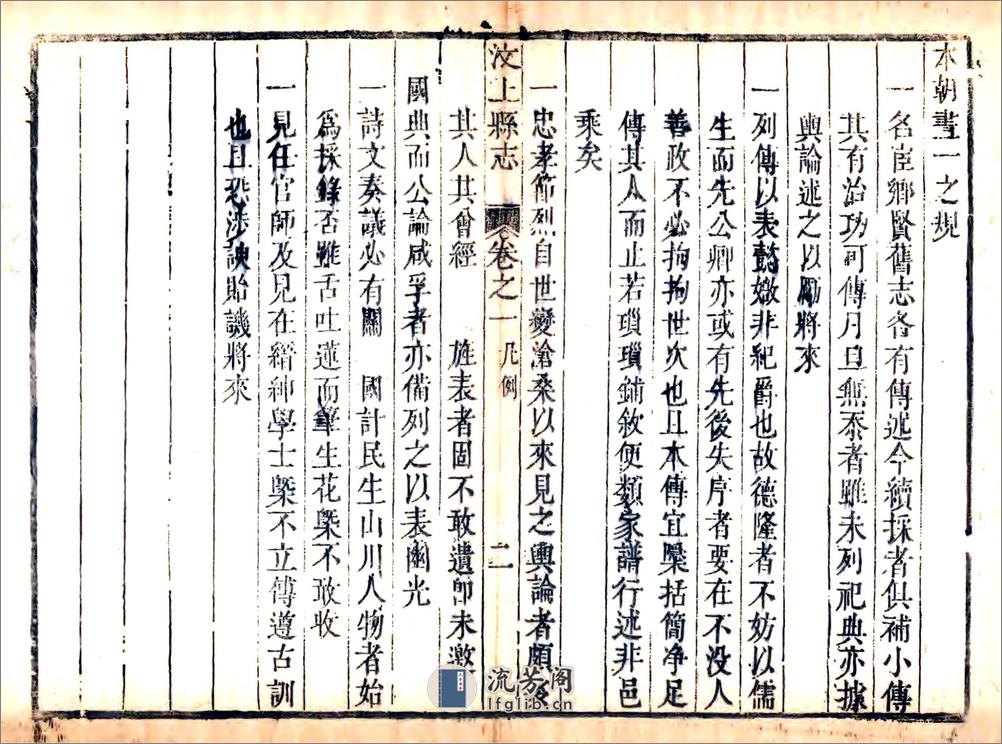 本朝晝一之規
一名宦鄉賢舊志各有傳述今續採者俱補小傳
其有治功可傳月旦無忝者雖未列祀典亦據
輿論述之以勵將來
一列傳以表懿媺非紀爵也故德隆者不妨以儒
生而先公卿亦或有先後失序者要在不沒人
善政不必拘拘世次也且本傳宜櫽括簡净足
傳其人而止若瑣瑣鋪敘便類家譜行述非邑
乘矣
汶上縣志 卷之一 凡例 二
一忠孝節烈自世變滄桑以來見之輿論者頗
其人其曾經 旌表者固不敢遺卽未邀
國典而公論咸孚者亦備列之以表幽光
一詩文奏議必有關 國計民生山川人物者始
爲採錄否雖舌吐蓮而筆生花槩不敢收
一見任官師及見在縉紳學士槩不立傳遵古訓
也且恐涉諛貽譏將來
流芳阁
lfglib.cn